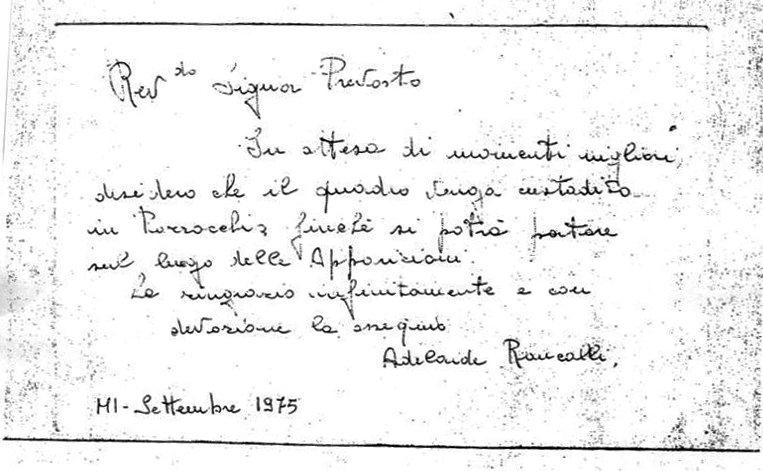 Rev.do Signor Prevosto
In attesa di momenti migliori,
desidero che il quadro venga custodito
in Parrocchia finchè si potrà portare
sul luogo delle Apparizioni.
La ringrazio infinitamente e con
devozione la ossequio
Adelaide Roncalli.
MI-Settembre 1975